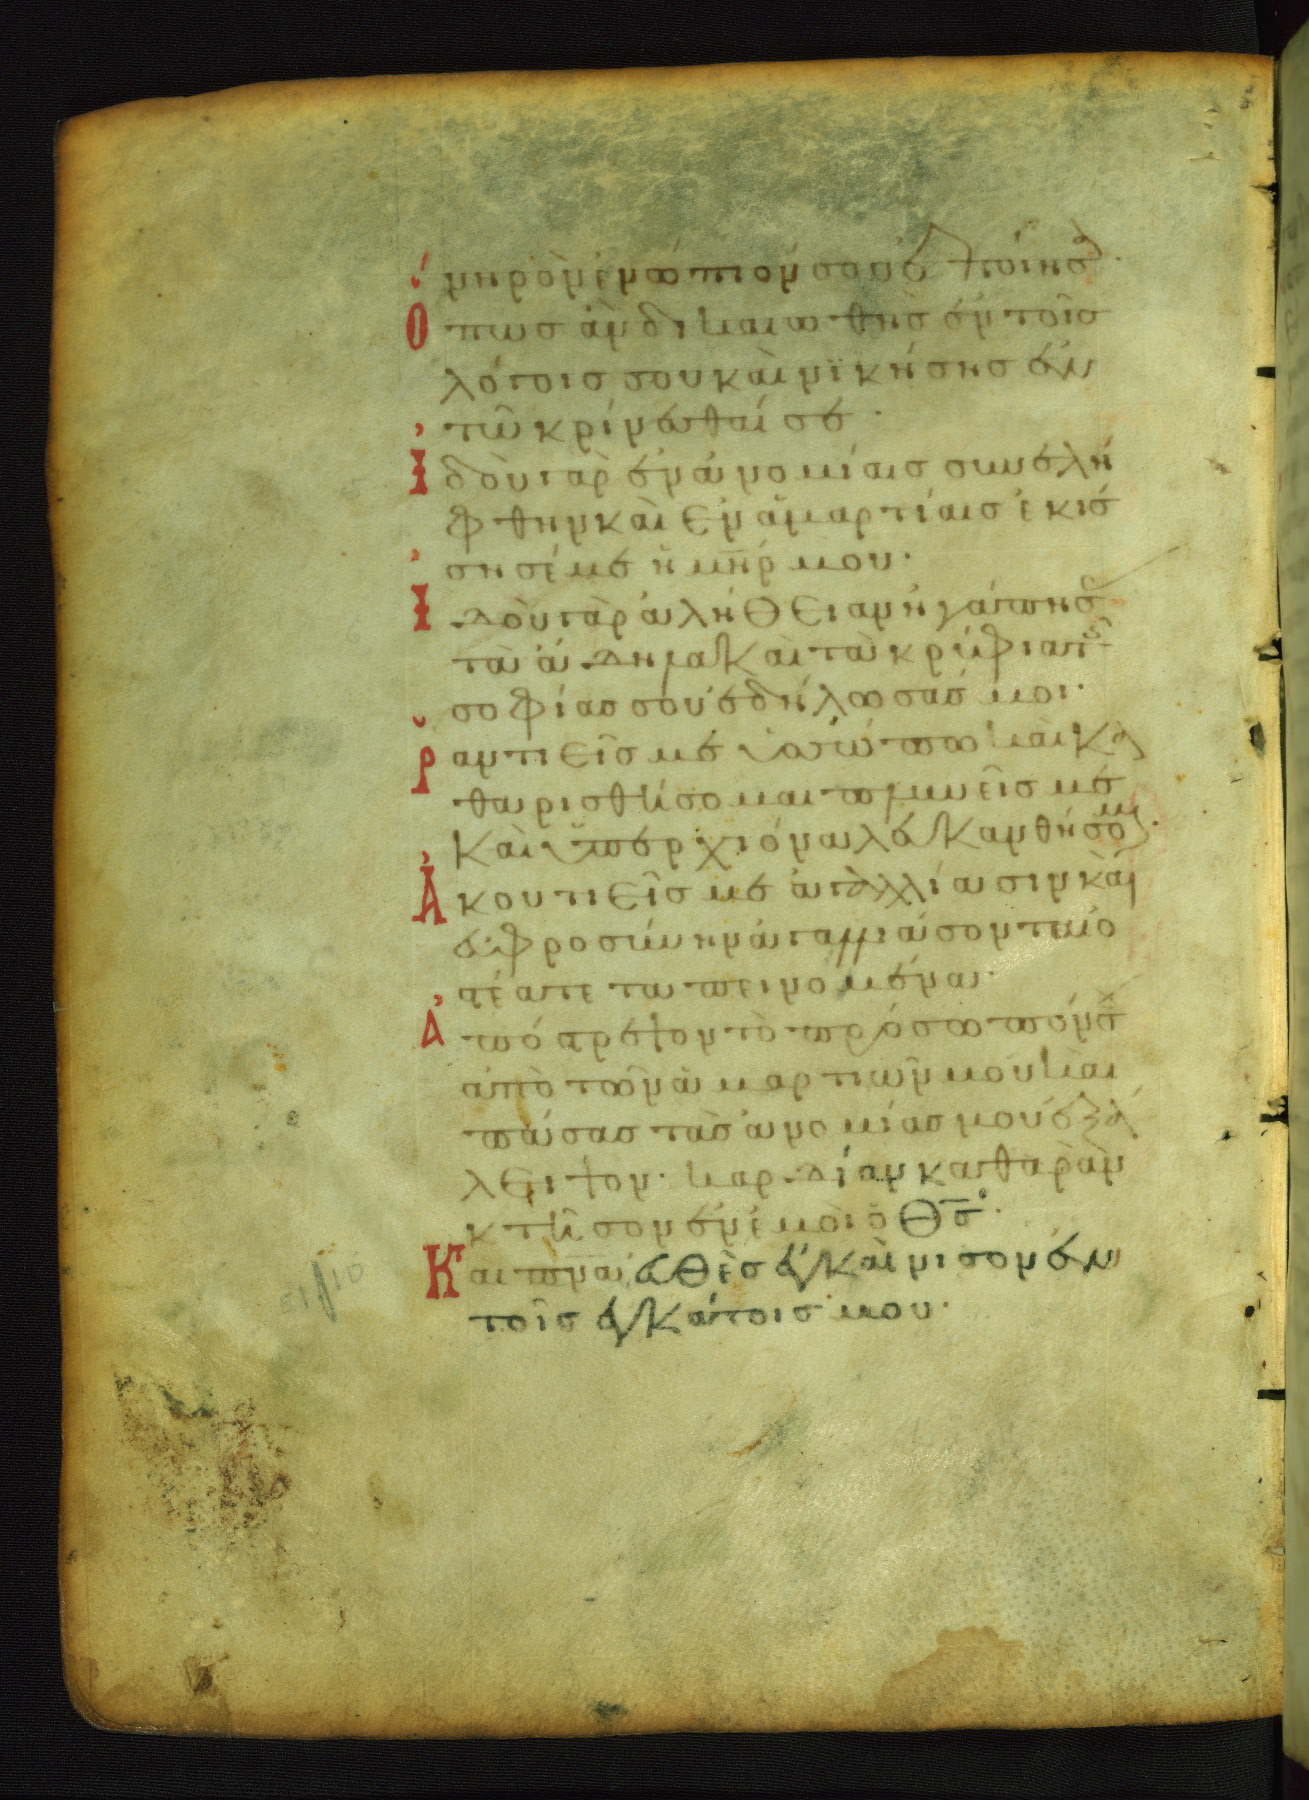 νηρὸν ἐνώπιόν σου ἐποίησα·
Ὅπως ἂν δικαιωθῆς ἐν τοῖς
λόγοις σου καὶ νικήσης ἐν
τῶ κρίνεσθαί σε·
Ἰδοὺ γὰρ ἐν ἀνομίαις συνελή
φθην καὶ ἐν ἁμαρτίαις ἐκίσ
σησέ με ἡ μηρ μου·
Ἰδοὺ γὰρ ἀλήθειαν ἠγάπησας
τὰ ἄδηλα καὶ τὰ κρύφια τῆς
σοφίας σου ἐδήλωσάς μοι·
Ῥαντιεῖς με ὑσσώπω καὶ κα
θαρισθήσομαι πλυνεῖς με
καὶ ὑπὲρ χιόνα λευκανθήσομαι·
Ἀκουτιεῖς με ἀγαλλίασιν καὶ
εὐφροσύνην ἀγαλλιάσονται ὀ
στέα τεταπεινομένα·
Ἀπόστρεψον τὸ πρόσωπόν σου
ἀπὸ τῶν ἁμαρτιῶν μου καὶ
πάσας τὰς ἀνομίας μου ἐξά
λειψον· καρδίαν καθαρὰν
κτῆσον ἐν ἐμοὶ ὁ Θς·
Καὶ πνα εὐθὲς ἐγκαίνισον ἐν
τοῖς ἐγκάτοις μου·